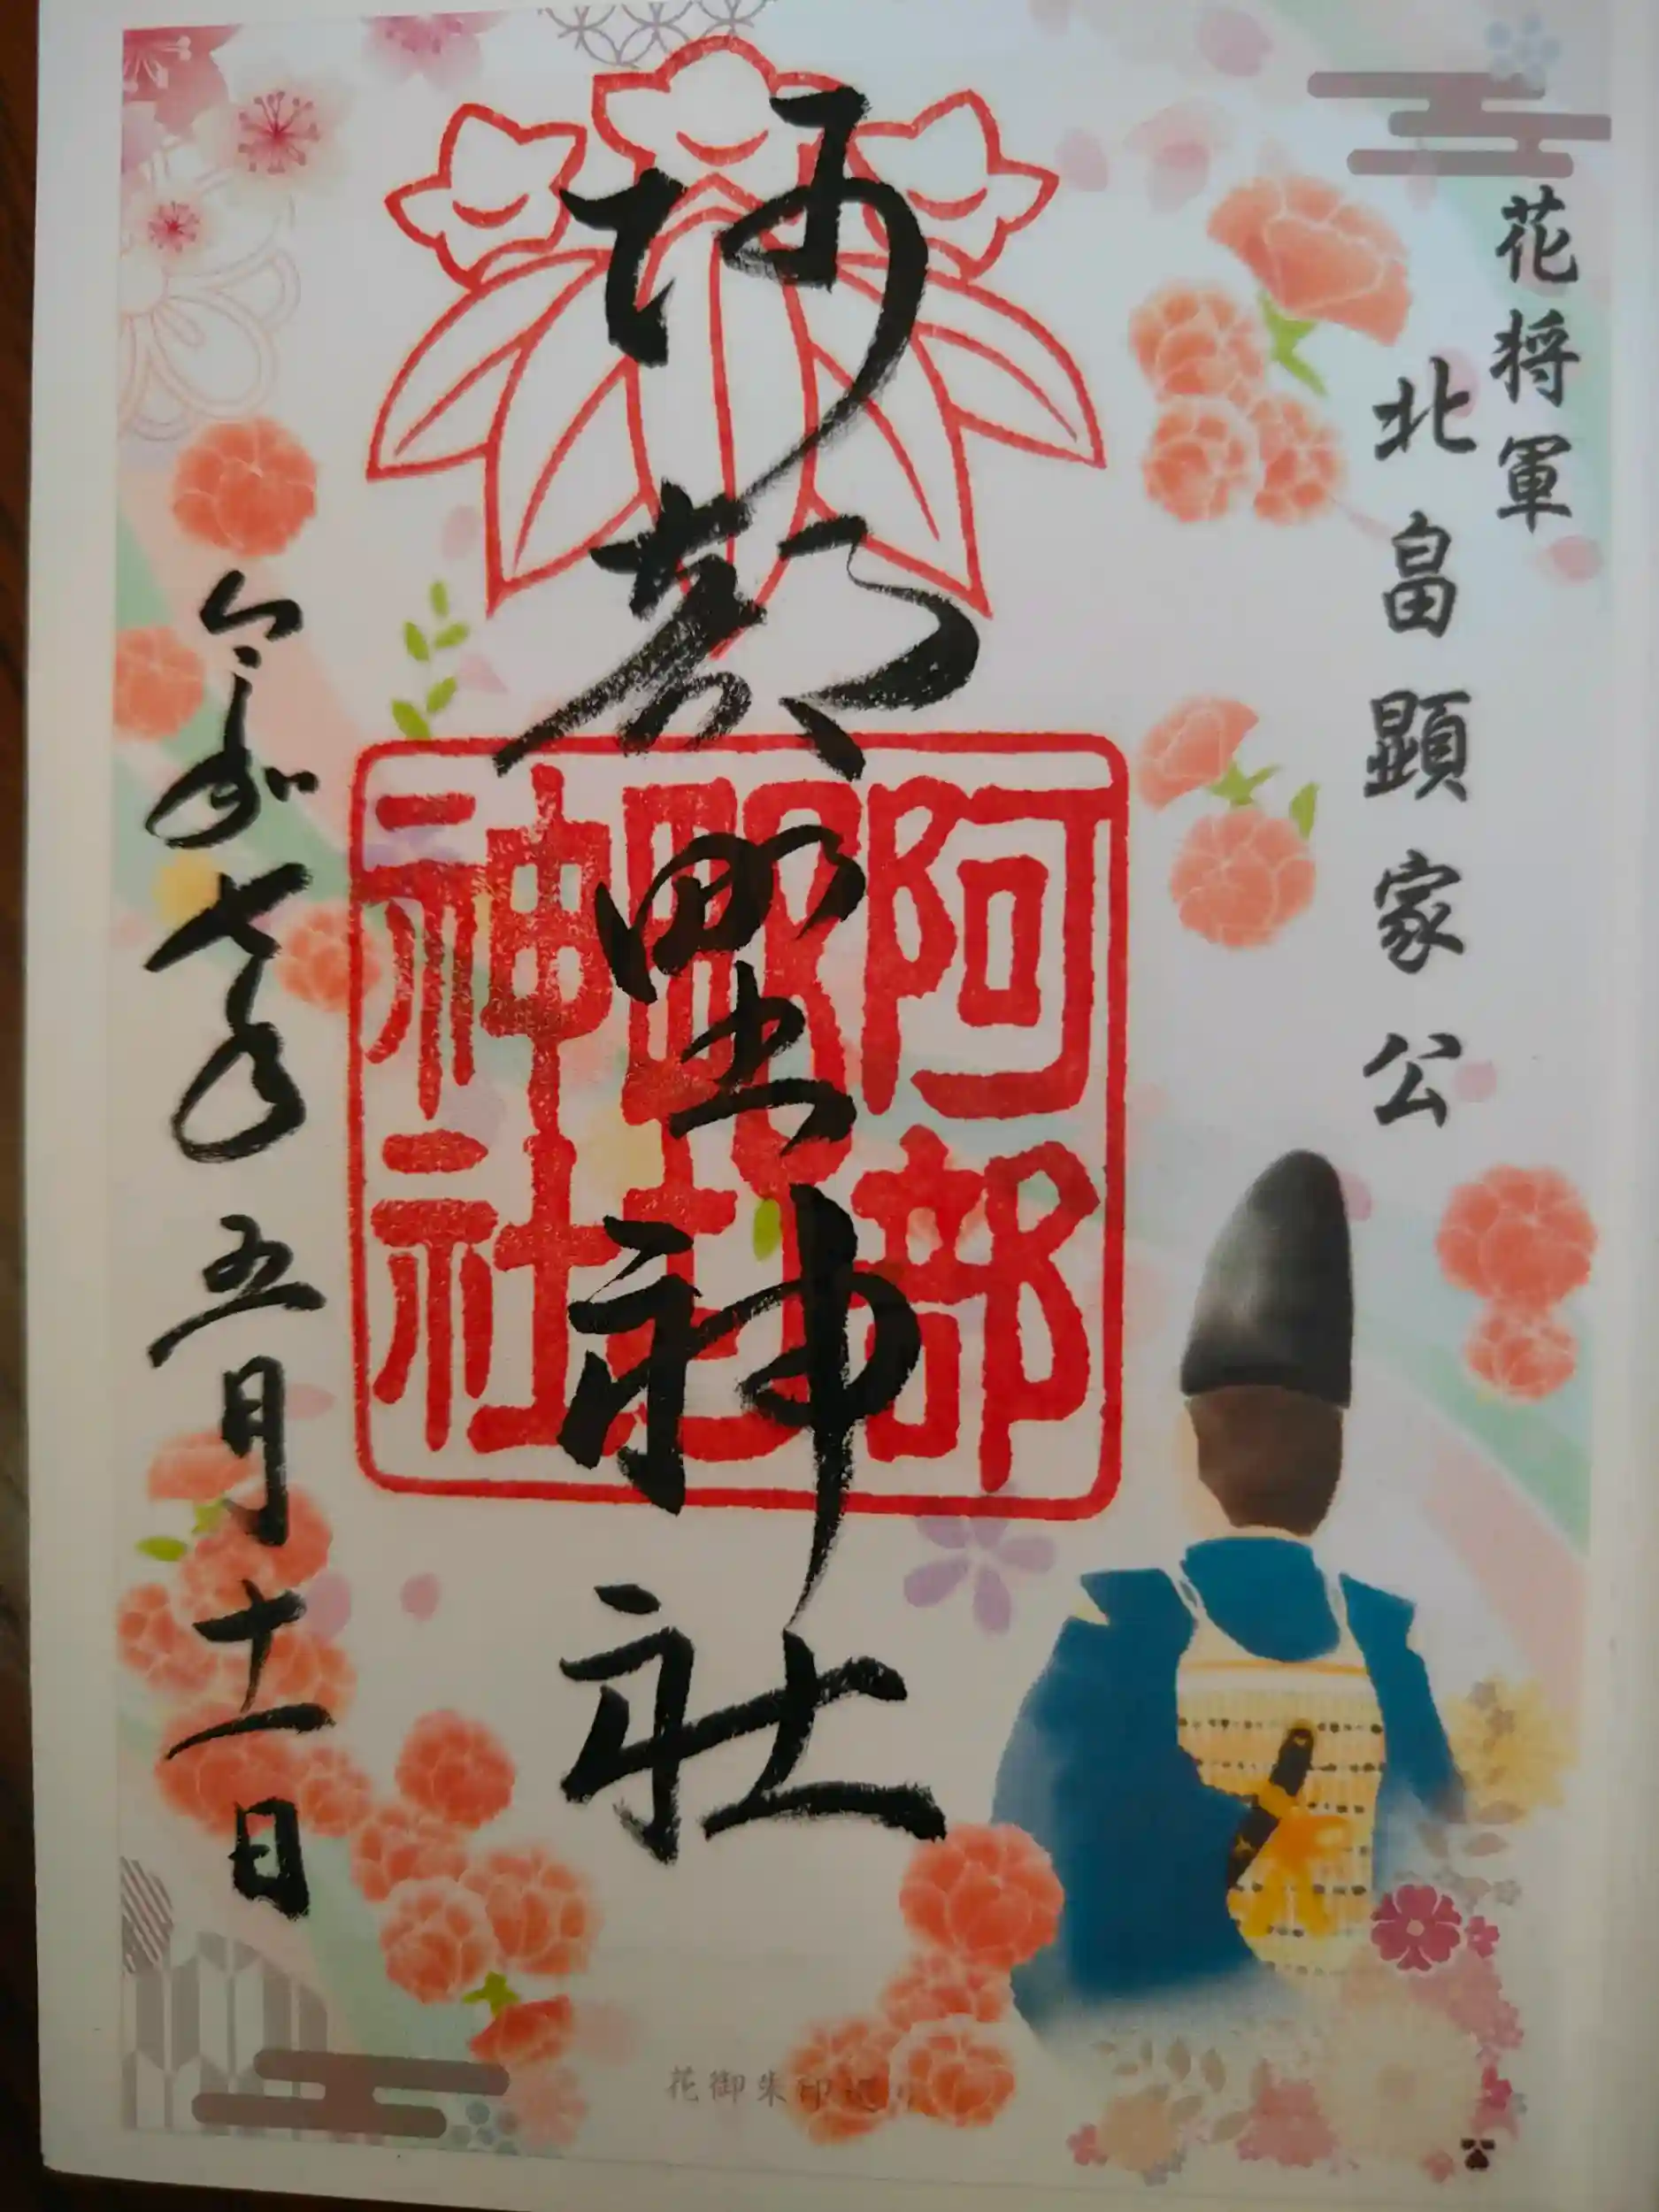 花将軍
北畠顕家公
阿部野神社
阿部野神社
令和七年五月十一日
花御朱印巡り